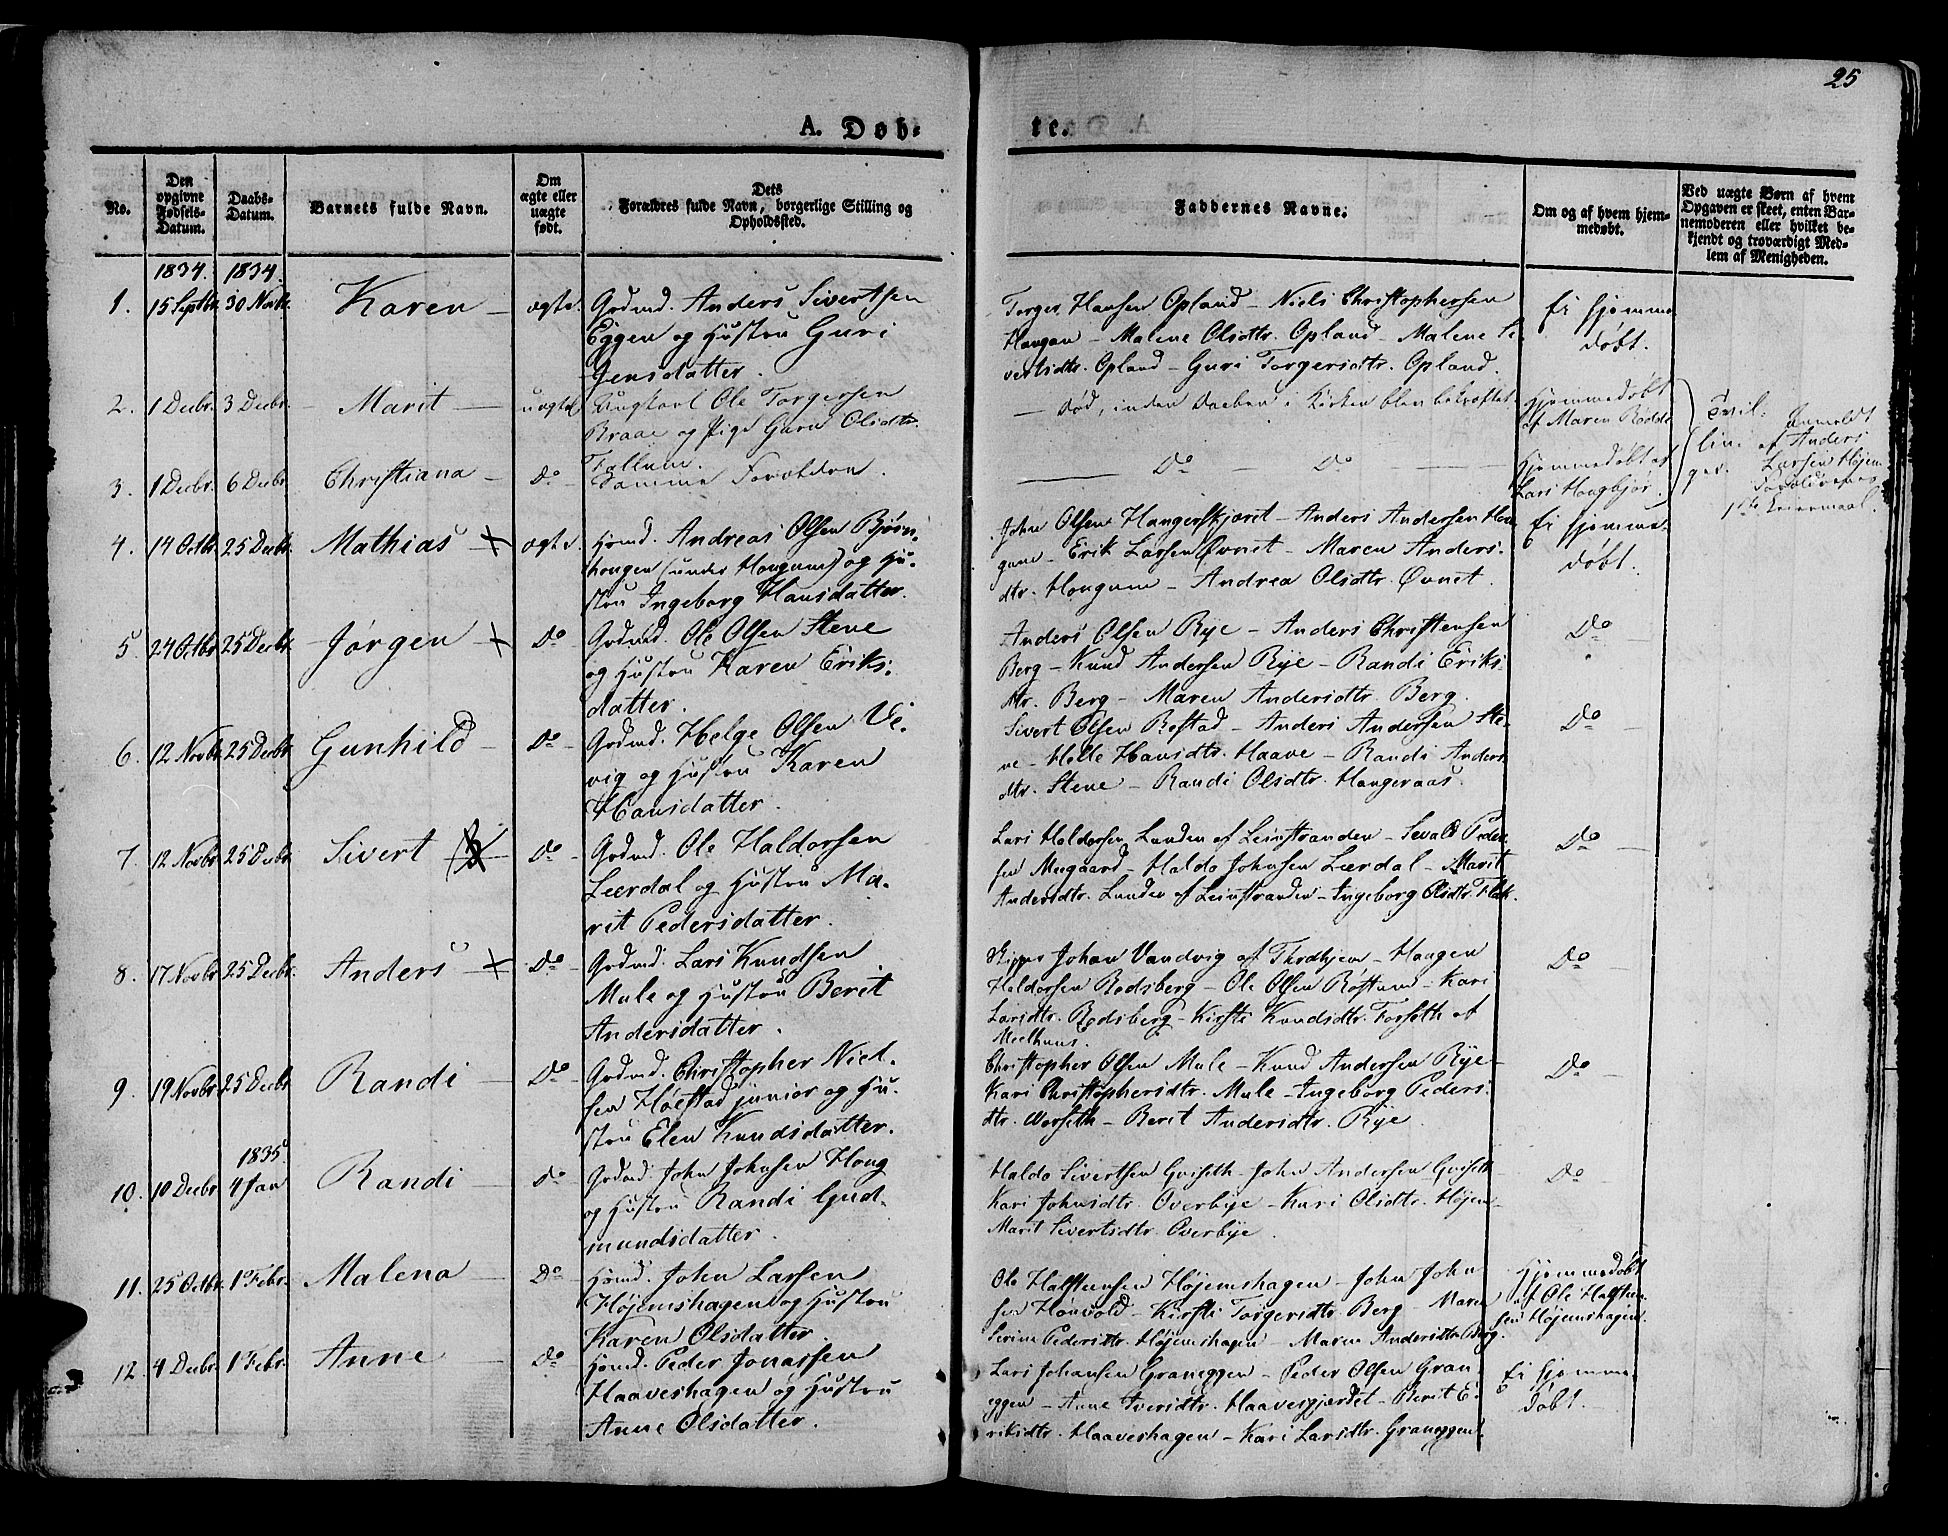 25
A. Døb-
te.
No.
Den
opgivne
Fødsels-
Datum.
Daabs-
Datum.
Barnets fulde Navn.
Om
ægte eller
uægte
født.
Dets
Forældres fulde Navn, borgerlige Stilling og
Opholdssted.
Faddernes Navne.
Om og af hvem hjem-
medøbt.
Ved uægte Børn af hvem
Opgaven er skeet, enten Bar-
nemoderen eller hvilket be-
kjendt og troværdigt Med-
lem af Menigheden.
1834. 1834.
1. 15 Septbr. 30 Novbr. Karen — ægte.
Grdmd. Anders Sivertsen
Eggen og Hustru Guri
Jensdatter.
Torger Hansen Opland — Niels Christophersen
Haugan — Malene Olsdtr. Opland — Malene Si-
vertsdtr. Opland — Guri Torgersdtr. Opland.
Ei hjemme-
døbt.
2. 1 Decbr. 3 Decbr. — Marit — uægte
Ungkarl Ole Torgersen
Braae og Pige Guru Olsdtr.
Follum.
— Død, inden Daaben i Kirken blev bekræftet.
Hjemmedøbt
af Maren Rødde
3. 1 Decbr. 6 Decbr. Christiana — Do
Samme Forældre.
— Do — Do —
Hjemmedøbt af
Lars Haugbjør.
Tvil-
lin-
ger.
Anmeldt
af Anders
Larsen Højem
Forældrenes
1ste Leiermaal.
4. 14 Octbr. 25 Decbr. Mathias — ægte.
Hsmd. Andreas Olsen Bjørn-
hougen (under Hougum) og Hu-
stru Ingeborg Hansdatter.
John Olsen Haugerskjæret — Anders Andersen Hou-
gum — Erik Larsen Øvnet — Maren Anders-
dtr. Hougum — Andrea Olsdtr. Øvnet.
Ei hjemme-
døbt.
5. 24 Octbr. 25 Decbr. Jørgen — Do
Grdmd. Ole Olsen Stene
og Hustru Karen Eriks-
datter.
Anders Olsen Rye — Anders Christensen
Berg — Knud Andersen Rye — Randi Eriks-
dtr. Berg — Maren Andersdtr. Berg.
Do —
6. 12 Novbr. 25 Decbr. Gunhild — Do
Grdmd. Helge Olsen Vi-
vig og Hustru Karen
Hansdatter.
Sivert Olsen Rostad — Anders Andersen Ste-
ne — Helle Hansdtr. Haave — Randi Anders-
dtr. Stene — Randi Olsdtr. Haugeraas.
Do —
7. 12 Novbr. 25 Decbr. Sivert — Do
Grdmd. Ole Haldorsen
Leerdal og Hustru Ma-
rit Pedersdatter.
Lars Haldorsen Lunden af Leinstranden — Sevald Peder-
sen Meegaard — Haldo Johnsen Leerdal — Marit
Andersdtr. Lunden af Leinstranden — Ingeborg Olsdtr. Flak.
Do —
8. 17 Novbr. 25 Decbr. Anders — Do
Grdmd. Lars Knudsen
Mule og Hustru Berit
Andersdatter.
Skipper Johan Vandvig af Thrdhjem — Haagen
Haldorsen Rodsberg — Ole Olsen Røstum — Kari
Larsdtr. Rodsberg — Kirsti Knudsdtr. Forseth af
Meelhuus.
Do —
9. 19 Novbr. 25 Decbr. Randi — Do
Grdmd. Christopher Niel-
sen Høestad junior og Hu-
stru Elen Knudsdatter.
Christopher Olsen Mule — Knud Andersen Rye —
Kari Christophersdtr. Mule — Ingeborg Peders-
dtr. Værseth — Berit Andersdtr. Rye.
Do —
1835.
10. 10 Decbr. 4 Jan Randi — Do
Grdmd. John Johnsen Haug
og Hustru Randi Gud-
mundsdatter.
Haldo Sivertsen Gviseth — John Andersen Gviseth —
Kari Johnsdtr. Overbye — Kari Olsdtr. Højem —
Marit Sivertsdtr. Overbye.
Do —
11. 25 Octbr. 1 Febr. Malena — Do
Hsmd. John Larsen
Højemshagen og Hustru
Karen Olsdatter.
Ole Halstensen Højemshagen — John John-
sen — Kirsti Torgersdtr. Berg — Maren
Serine Pedersdtr. Højemshagen — Maren Andersdtr. Berg.
Hjemmedøbt
af Ole Halsten-
sen Højemshagen.
12. 4 Decbr. 1 Febr. Anne — Do
Hsmd. Peder Jonassen
Haaveshagen og Hustru
Anne Olsdatter.
Lars Johansen Graneggen — Peder Olsen Gran-
eggen — Anne Iversdtr. Haavesgjerdet — Berit E-
riksdtr. Haaveshagen — Kari Larsdtr. Graneggen.
Ei hjemme-
døbt.